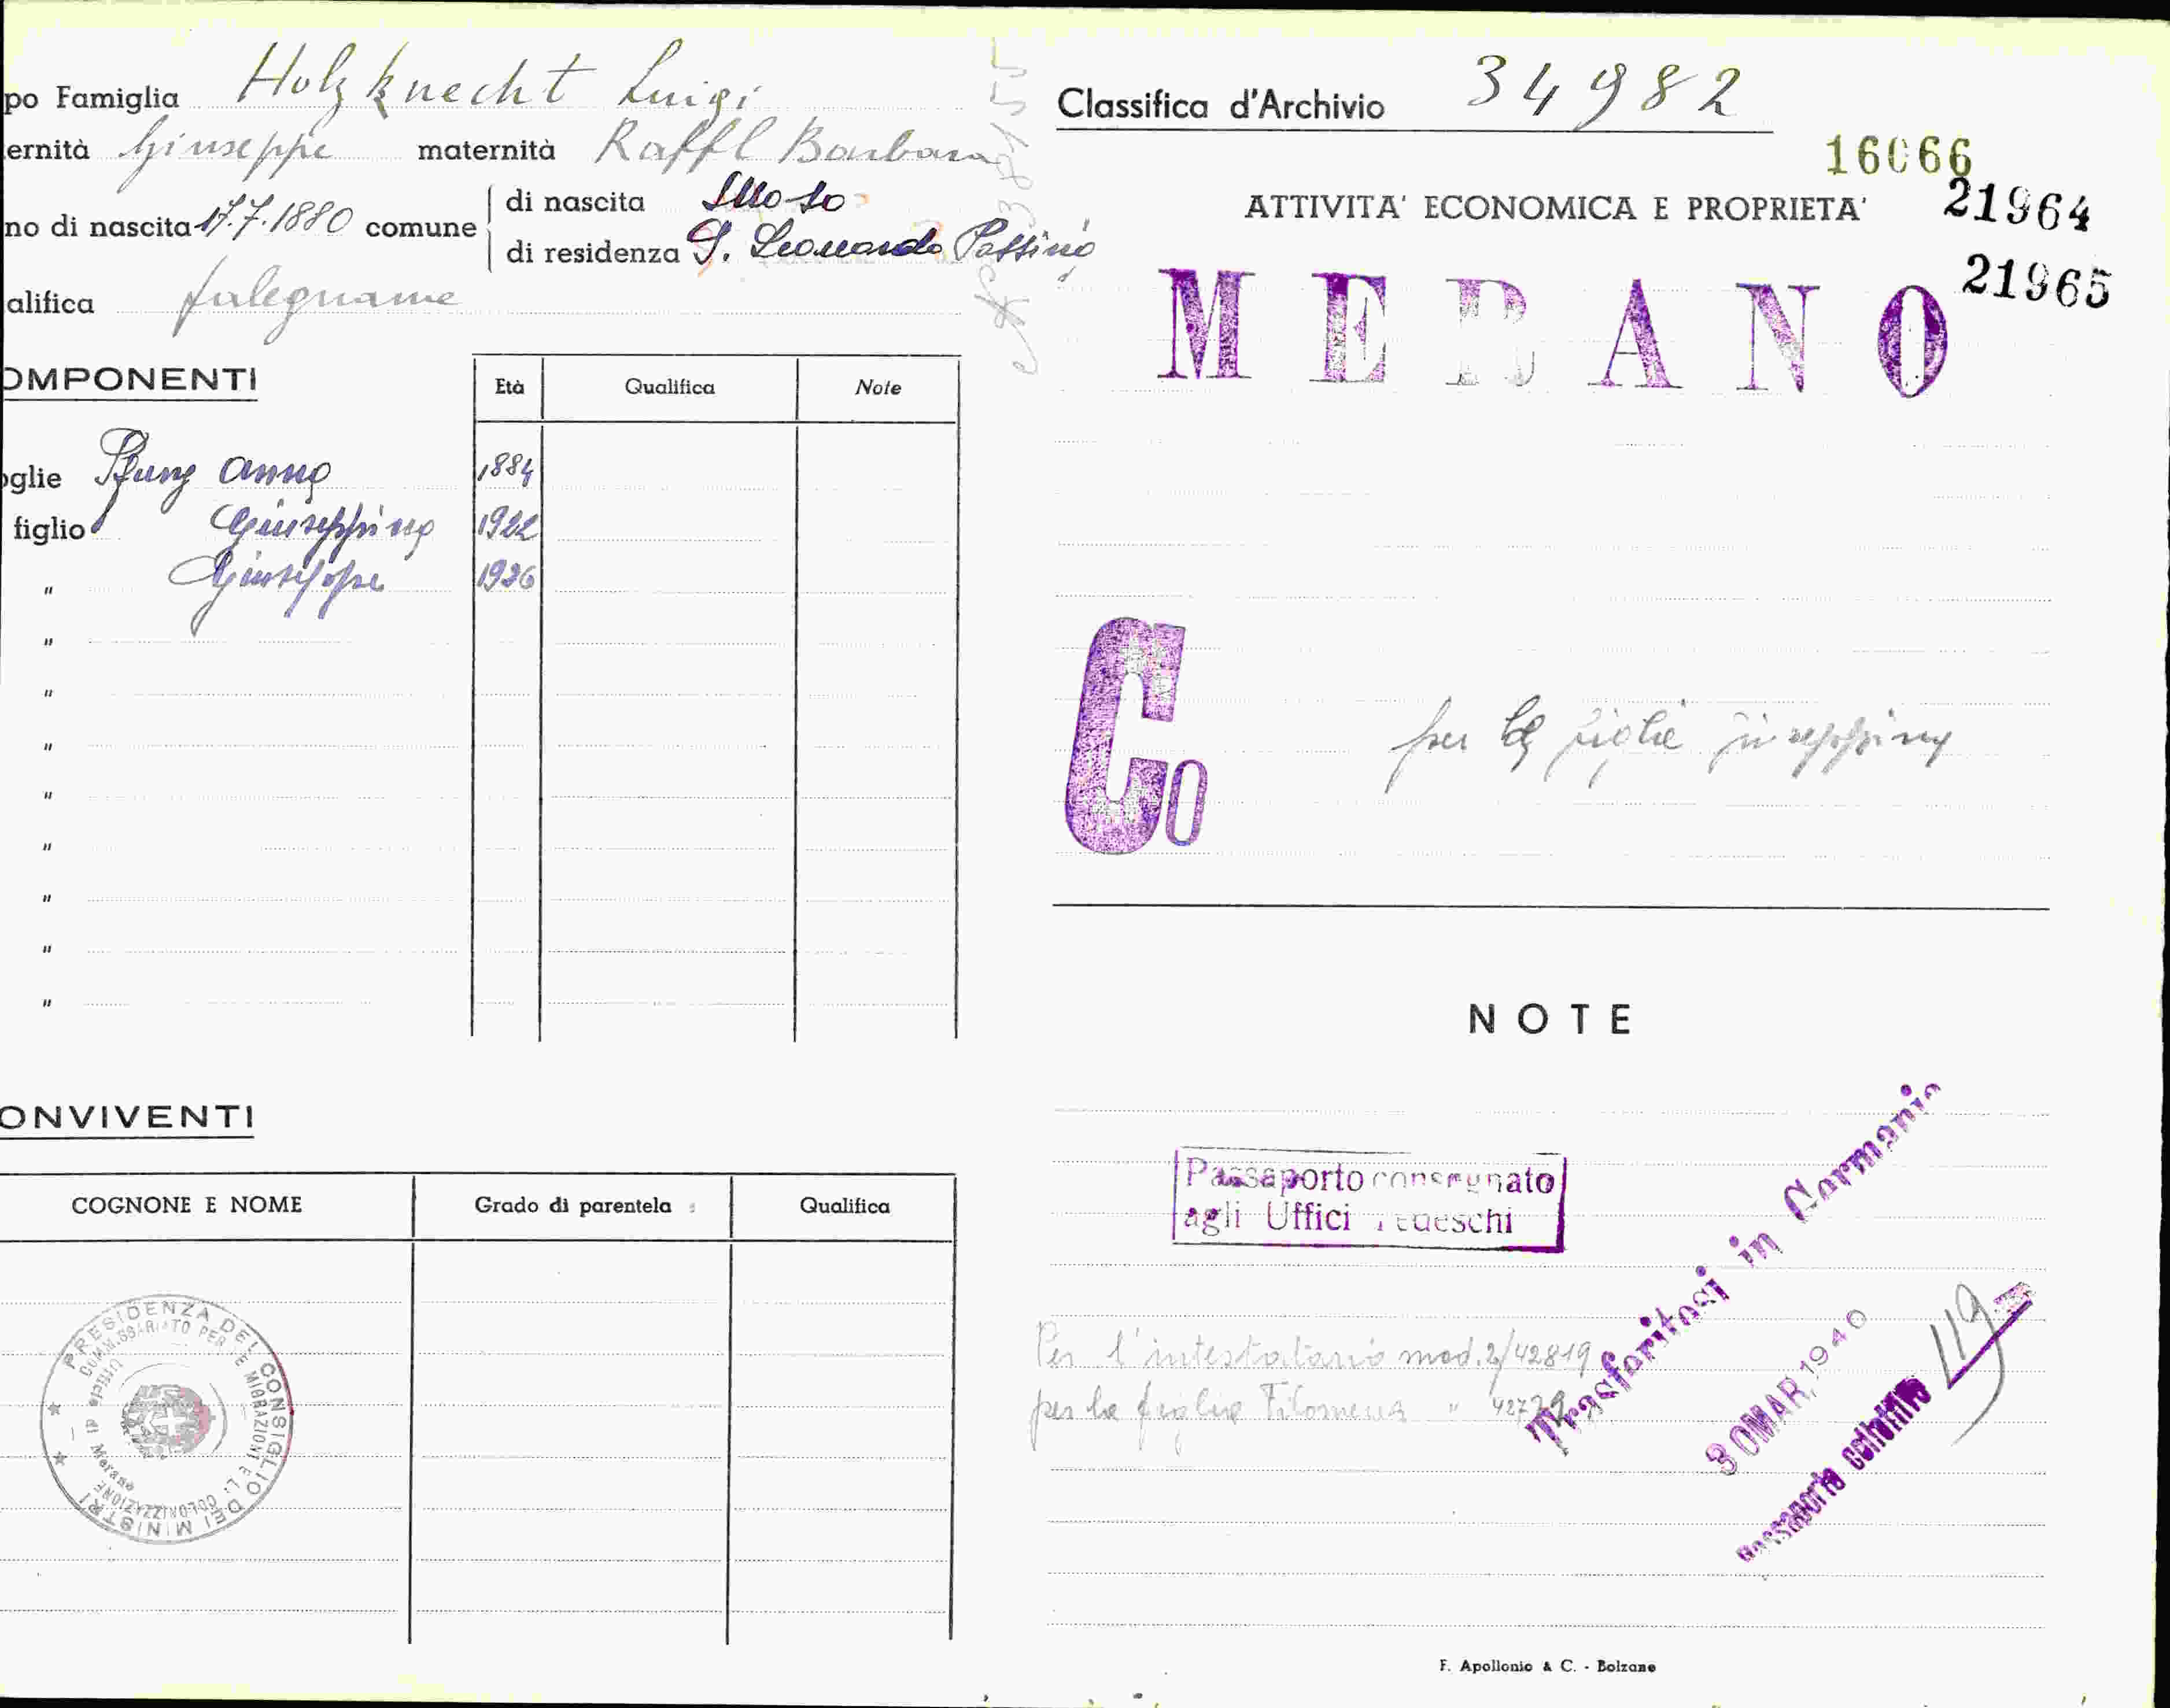 po Famiglia Holzknecht Luigi
ernità Giuseppe maternità Raffl Barbara
no di nascita 17.7.1880 comune
di nascita Moso
di residenza S. Leonardo Passirio
alifica falegname
OMPONENTI
Età Qualifica Note
oglie Anna 1884
figlio Giuseppina 1922
" Giuseppe 1926
"
"
"
"
"
"
"
"
ONVIVENTI
COGNONE E NOME Grado di parentela Qualifica
PRESIDENZA DEL CONSIGLIO DEI MINISTRI
COMMISSARIATO PER LE MIGRAZIONI E LA COLONIZZAZIONE
Ufficio di Merano
Classifica d'Archivio 34982
16066
21964
21965
ATTIVITA' ECONOMICA E PROPRIETA'
MERANO
Co
per la figlia Giuseppina
NOTE
Passaporto consegnato
agli Uffici Tedeschi
Per l'intestatario mod. 2/42819
per la figlia Filomena "
Trasferitosi in Germania
30 MAR. 1940
Passaporto collettivo
119
F. Apollonio & C. - Bolzano